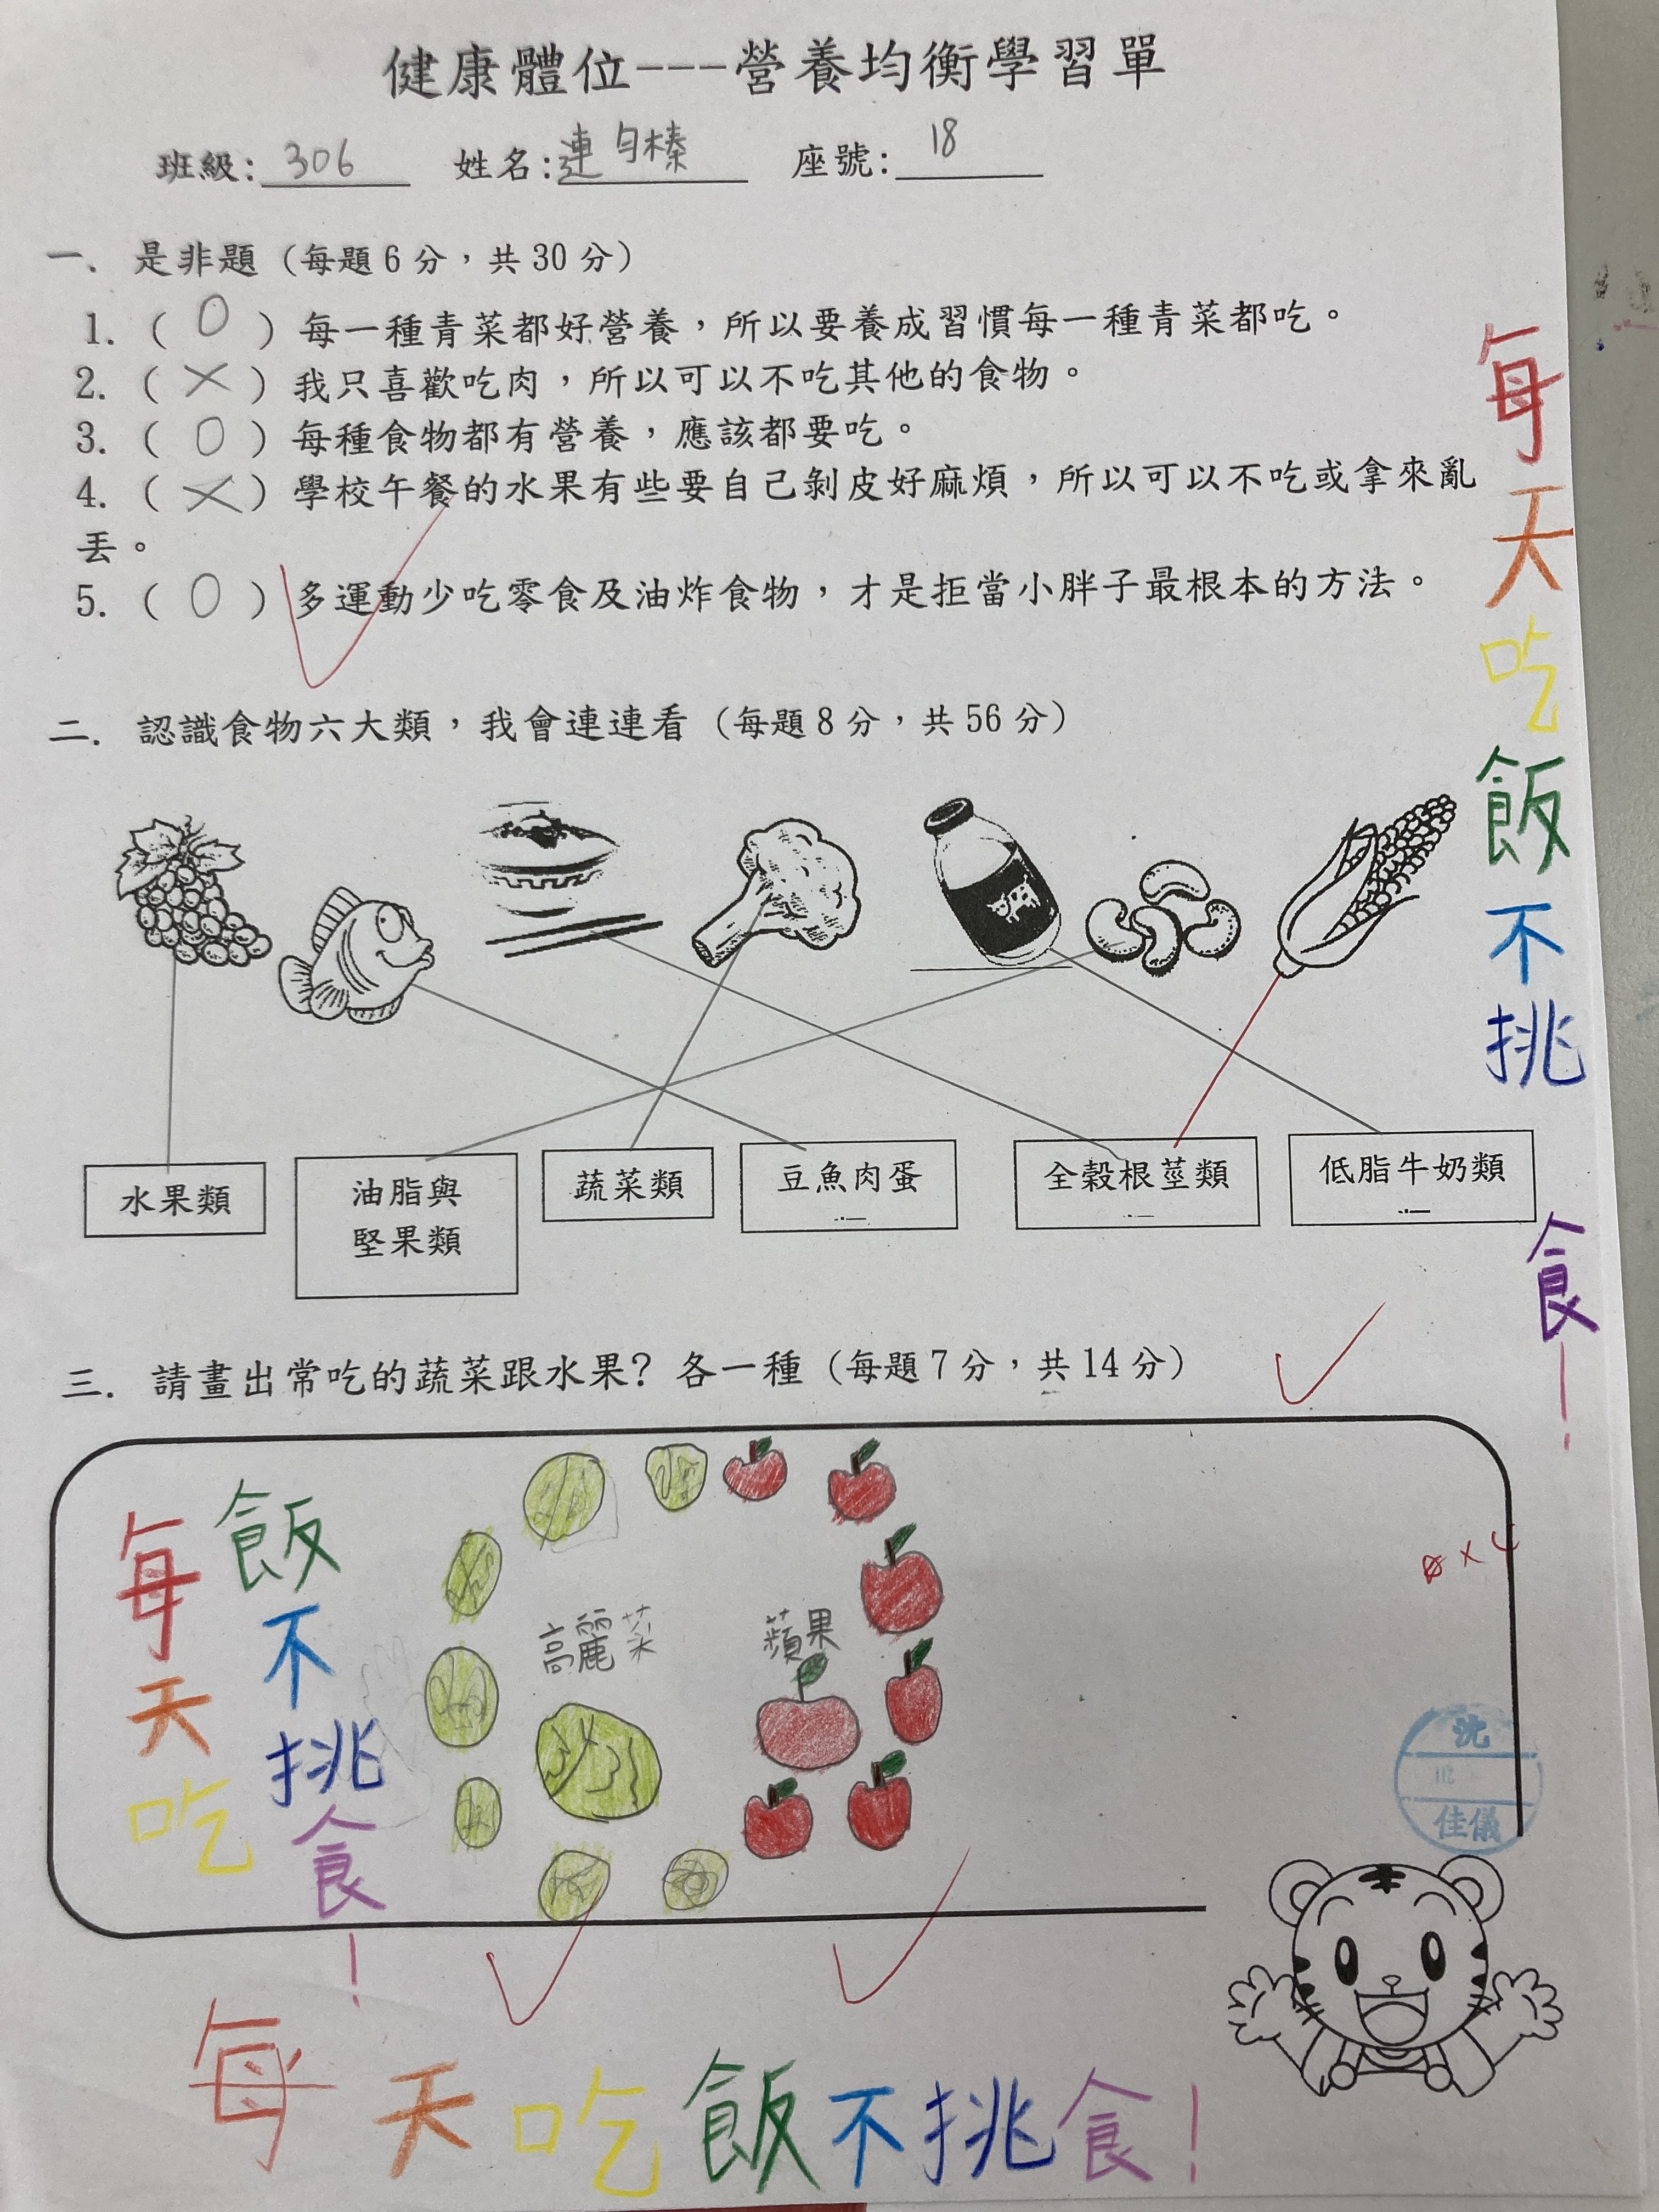 健康體位---營養均衡學習單
班級: 306 姓名: 連勻榛 座號: 18
一. 是非題 (每題 6 分，共 30 分)
1. ( O ) 每一種青菜都好營養，所以要養成習慣每一種青菜都吃。
2. ( X ) 我只喜歡吃肉，所以可以不吃其他的食物。
3. ( O ) 每種食物都有營養，應該都要吃。
4. ( X ) 學校午餐的水果有些要自己剝皮好麻煩，所以可以不吃或拿來亂
丟。
5. ( O ) 多運動少吃零食及油炸食物，才是拒當小胖子最根本的方法。
二. 認識食物六大類，我會連連看 (每題 8 分，共 56 分)
水果類
油脂與
堅果類
蔬菜類
豆魚肉蛋
全穀根莖類
低脂牛奶類
每天吃飯不挑食！
三. 請畫出常吃的蔬菜跟水果? 各一種 (每題 7 分，共 14 分)
每天吃
飯不挑食！
高麗菜
蘋果
沈
112
佳儀
每天吃飯不挑食！